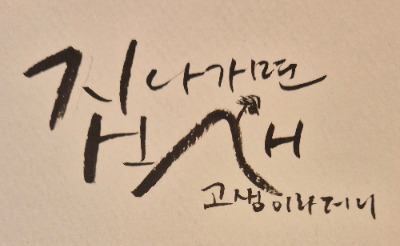 집 나가면
개
고생이라더니